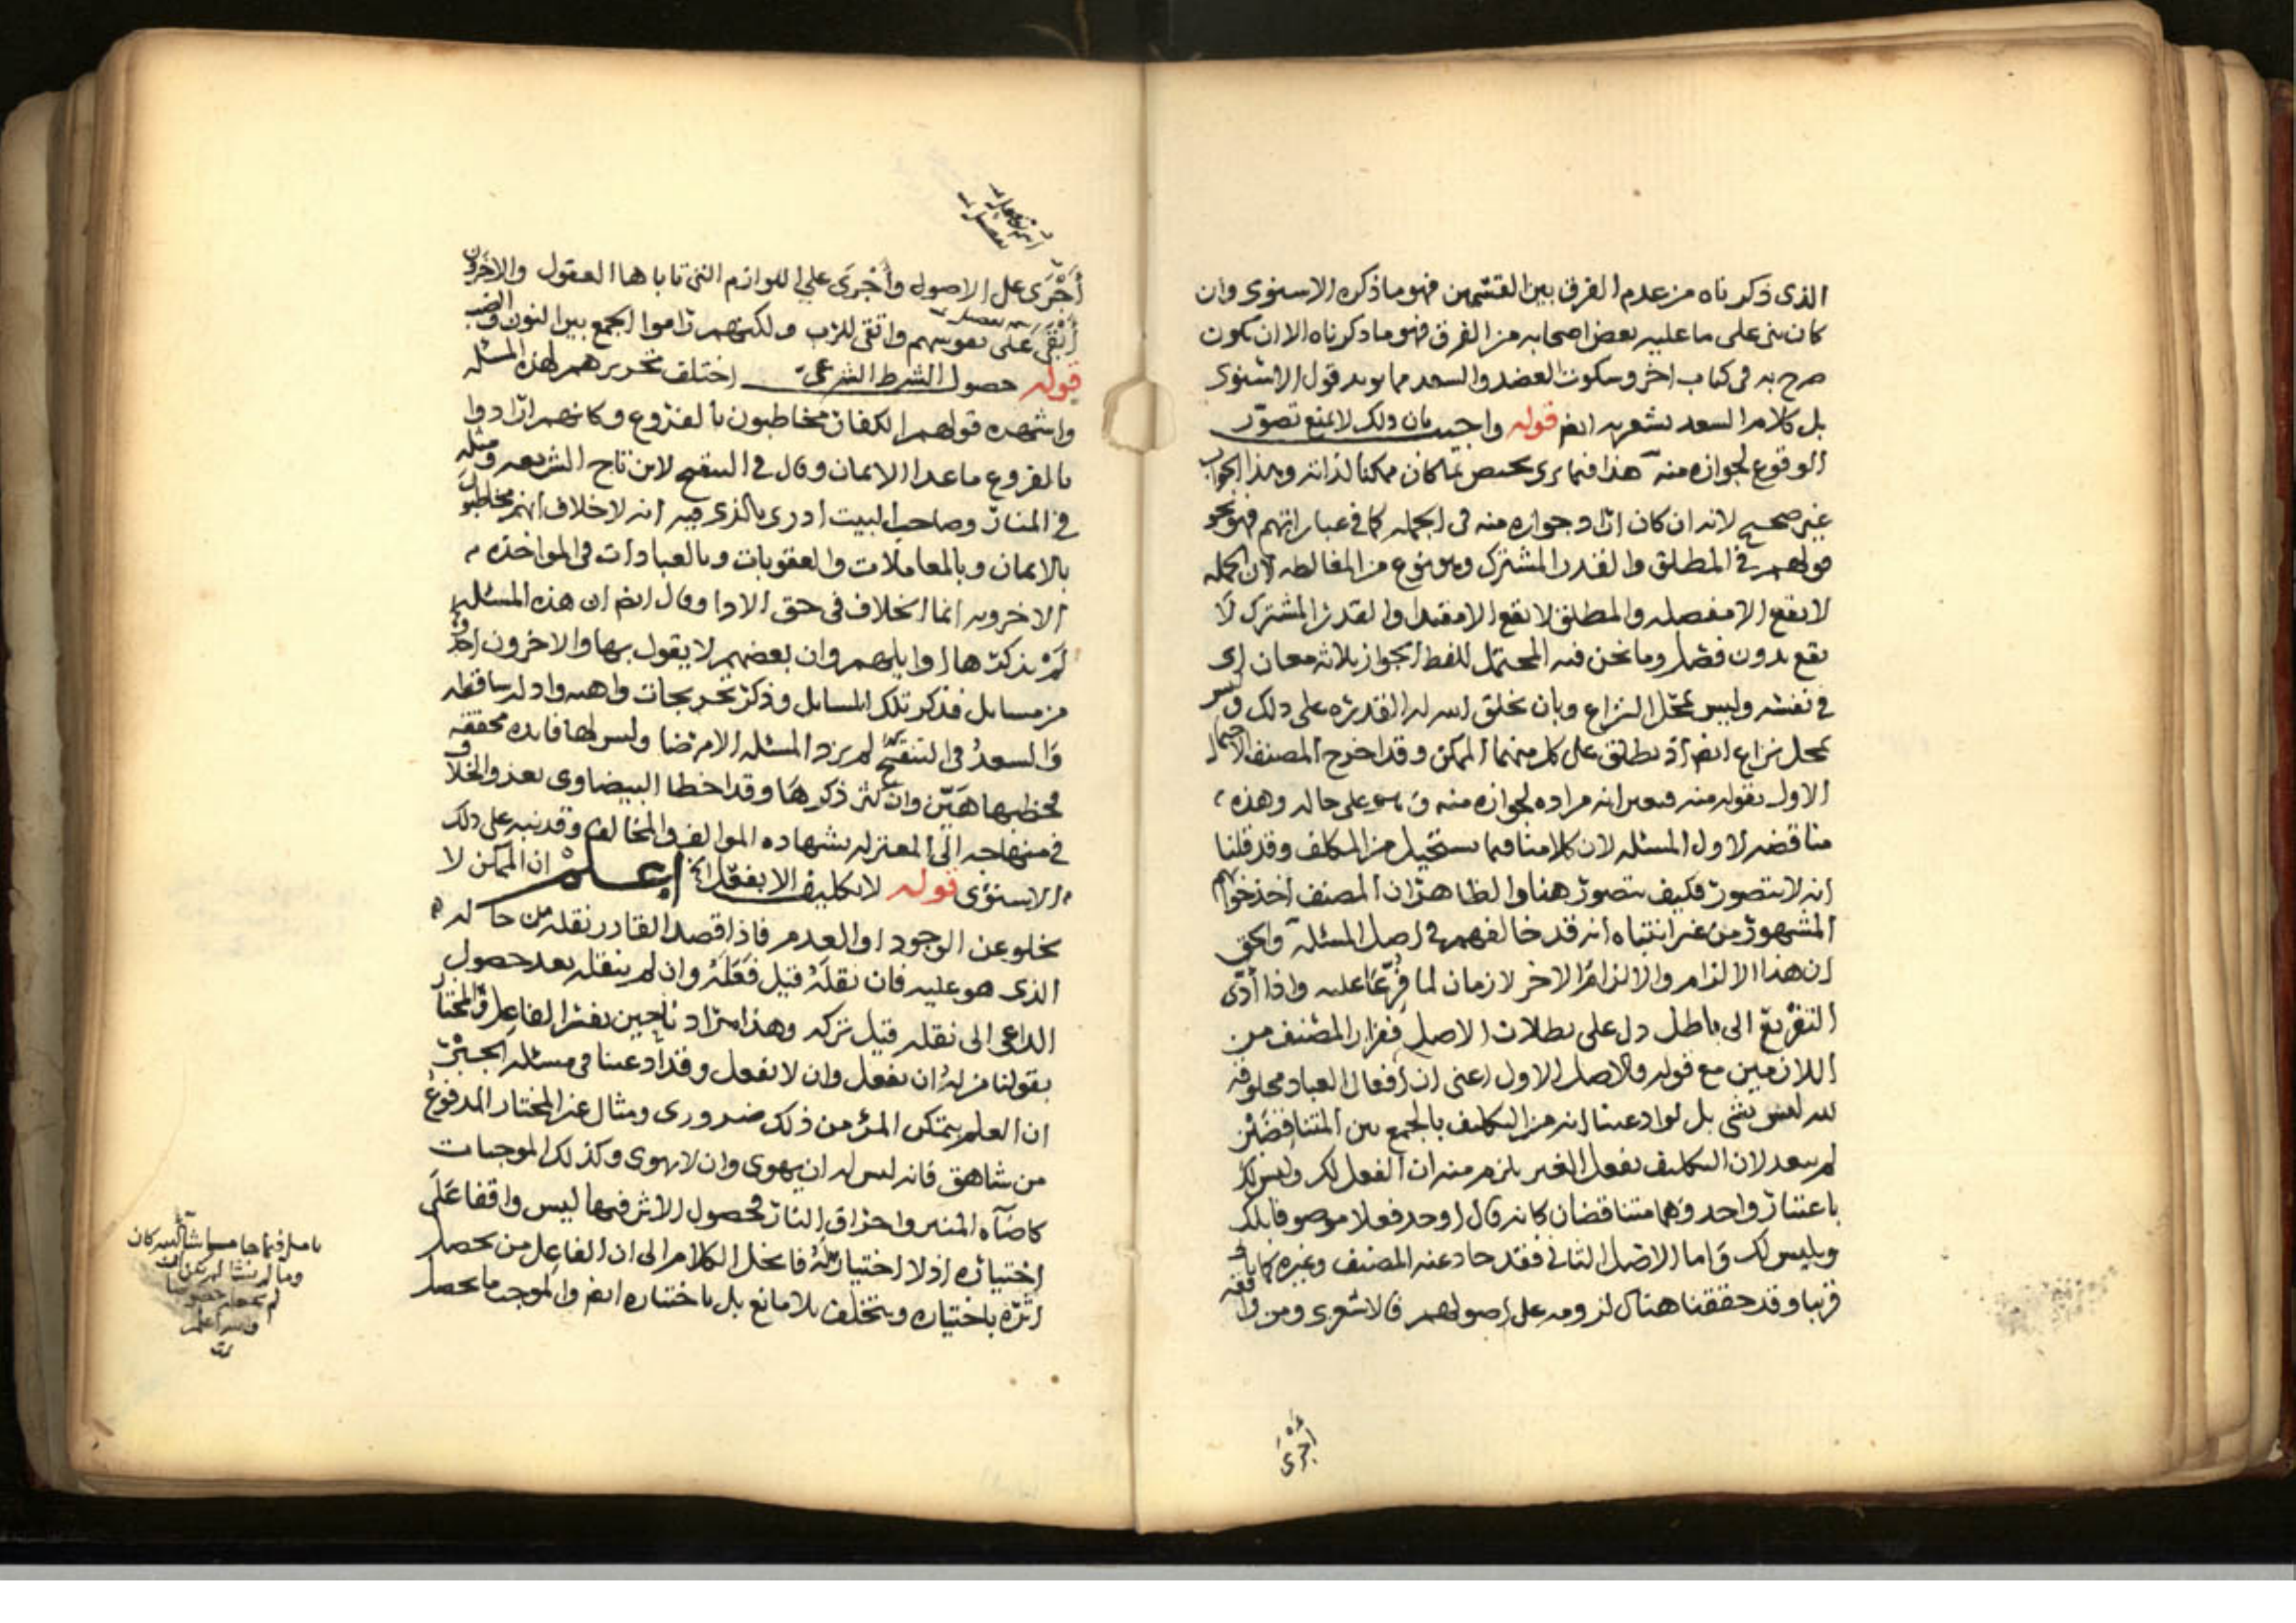 الذى ذكرناه من عدم الفرق بين القسمين فهو ما ذكره الاسنوى وان
كان بنى على ما عليه بعض اصحابه من الفرق فهو ما ذكرناه الا ان يكون
صرح به فى كتاب اخر وسكوت العضد والسعد مما يويد قول الاسنوى
بل كلام السعد يشعر به ايضا قوله واجيب بان ذلك لا يمنع تصور
الوقوع لجوازه منه هذا فيما يرى يختص بما كان ممكنا لذاته وهذا الجواب
غير صحيح لانه ان كان اراد جوازه منه فى الجمله كما فى عباراتهم فهو نحو
قولهم فى المطلق والقدر المشترك وهو نوع من المغالطه لان الجمله
لا تقع الا مفصله والمطلق لا يقع الا مقيدا والقدر المشترك لا
يقع بدون فصل وما نحن فيه المحتمل للفظ الجواز ثلاثه معان اى
فى نفسه وليس محل النزاع وبان يخلق الله له القدره على ذلك وليس
بمحل نزاع ايضا اذ يطلق على كل منهما الممكن وقد اخرج المصنف الاحتمال
الاول بقوله منه فتعين انه مراده لجوازه منه على حاله وهذه
مناقضه لاول المسئله لان كلامنا فيما يستحيل من المكلف وقد قلنا
انه لا يتصور فكيف يتصور هنا والظاهر ان المصنف اخذ جوابهم
المشهور من غير انتباه انه قد خالفهم فى اصل المسئلة والحق
ان هذا الالزام والالزام الاخر لازمان لما فرعا عليه واذا أدى
التفريع الى باطل دل على بطلان الاصل ففرار المصنف من
اللازمين مع قوله بالاصل الاول اعنى ان افعال العباد مخلوقه
لله ليس بشى بل لو ادعينا انه من التكليف بالجمع بين المتناقضين
لم يبعد لان التكليف بفعل الغير يلزم منه ان الفعل لك وليس لك
باعتبار واحد وهما متناقضان كانه قال اوجد فعلا موصوفا بلك
وبليس لك واما الاصل الثانى فقد حاد عنه المصنف وغيره كما ياتى
قريبا وقد حققنا هناك لزومه على اصولهم فالاشعرى ومن وافقه
أجرى
أجرى على الاصول وأجرى على اللوازم التى تاباها العقول والاخرون
أبقى على نفوسهم واتقى للرب ولكنهم راموا الجمع بين النون والضب
قوله حصول الشرط الشرعى اختلف تحريرهم لهذه المسئله
واشهده قولهم الكفار مخاطبون بالفروع وكانهم ارادوا
بالفروع ما عدا الايمان وقال فى التنقيح لابن تاج الشريعه ومثله
فى المنار وصاحب البيت ادرى بالذى فيه انه لا خلاف انهم مخاطبون
بالايمان وبالمعاملات والعقوبات وبالعبادات فى المواخذه
الاخرويه انما الخلاف فى حق الادا وقال ايضا ان هذه المسئله
لم يذكرها اوايلهم وان بعضهم لا يقول بها والاخرون اخذوه
من مسايل فذكر تلك المسايل وذكر تخريجات واهيه وادله ساقطه
والسعد فى التنقيح لم يزد المسئله الا مرضا وليس لها فايده محققه
فخطبها هين وان كثر ذكرها وقد اخطا البيضاوى بعزو الخلاف
فى منهاجه الى المعتزله بشهاده الموالف والمخالف وقد نبه على ذلك
الاسنوى قوله لا تكليف الا بفعل الخ إعلم ان الممكن لا
يخلو عن الوجود او العدم فاذا قصد القادر نقله من حاله
الذى هو عليه فان نقله قيل فعله وان لم ينقله بعد حصول
الداعى الى نقله قيل تركه وهذا مراد ناحين نفسر الفاعل والمختار
بقولنا من له ان يفعل وان لا يفعل وقد ادعينا فى مسئله الجبر
ان العلم بتمكن المرء من ذلك ضرورى ومثال غير المختار المدفوع
من شاهق فانه ليس له ان يهوى وان لا يهوى وكذلك الموجبات
كاضآه المنير واحراق النار فحصول الاثر فيها ليس واقفا على
اختياره اذ لا اختيار له فانحل الكلام الى ان الفاعل من يحصل
اثره باختياره ويتخلف بلا مانع بل باختياره ايضا والموجب ما يحصل